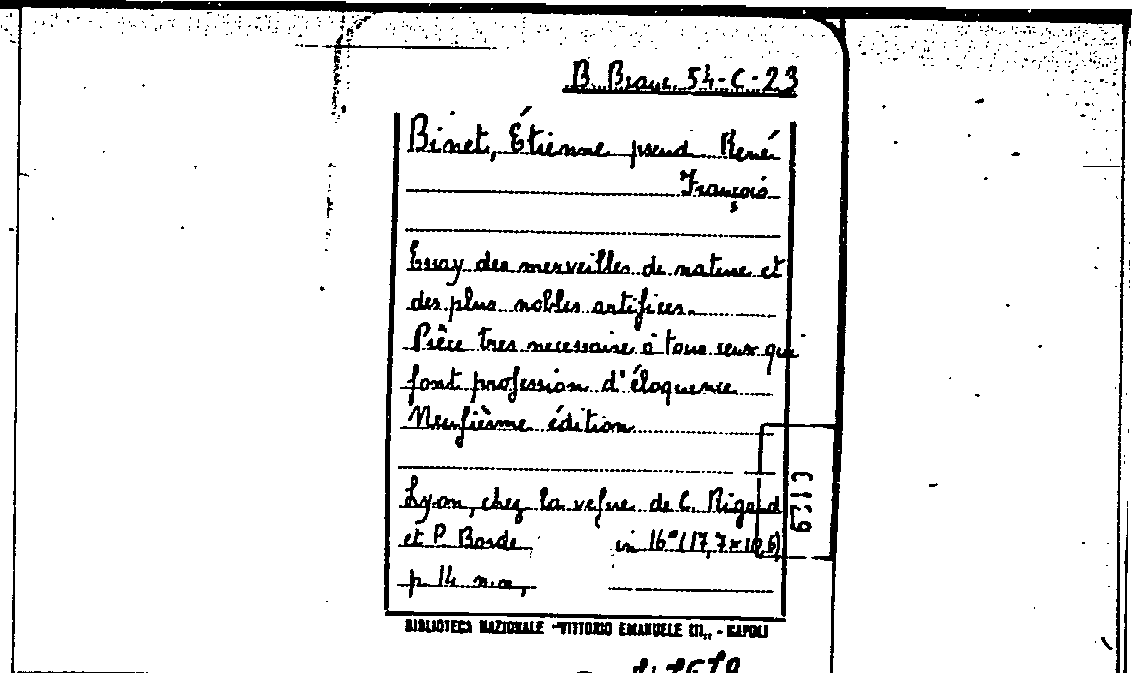 B. Branc. 54-C-23
Binet, Étienne pseud René
François
Essay des merveilles de nature et
des plus nobles artifices.
Pièce tres necessaire à tous ceux qui
font profession d'éloquence
Neufième édition
Lyon, chez la vefue de C. Rigaud
et P. Borde in 16° (17,7×10,6)
p 14 n.n,
BIBLIOTECA NAZIONALE "VITTORIO EMANUELE III" - NAPOLI